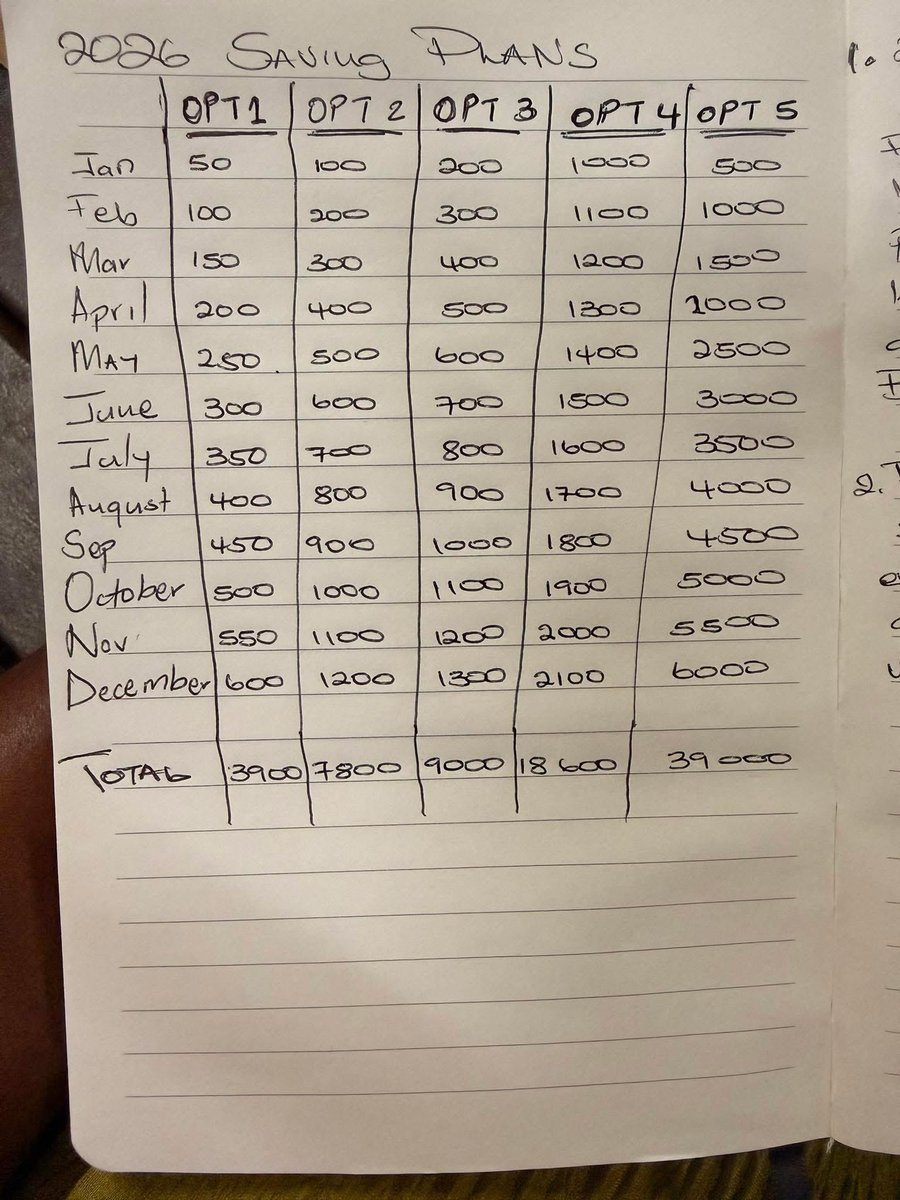 2026 SAVING PLANS
OPT 1 OPT 2 OPT 3 OPT 4 OPT 5
Jan 50 100 200 1000 500
Feb 100 200 300 1100 1000
Mar 150 300 400 1200 1500
April 200 400 500 1300 2000
MAY 250 500 600 1400 2500
June 300 600 700 1500 3000
July 350 700 800 1600 3500
August 400 800 900 1700 4000
Sep 450 900 1000 1800 4500
October 500 1000 1100 1900 5000
Nov 550 1100 1200 2000 5500
December 600 1200 1300 2100 6000
TOTAL 3900 7800 9000 18 600 39 000
1.
2.